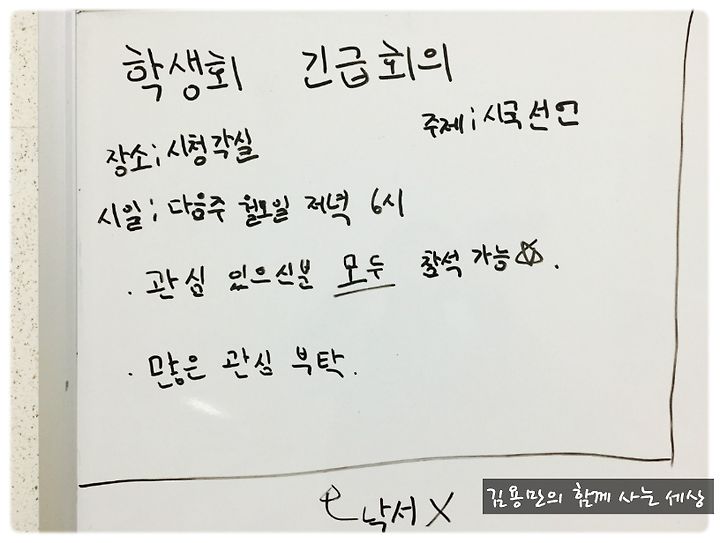 학생회 긴급회의
주제; 시국선언
장소; 시청각실
시일; 다음주 월요일 저녁 6시
· 관심 있으신분 모두 참석 가능☆.
· 많은 관심 부탁.
낙서 X
김용만의 함께 사는 세상